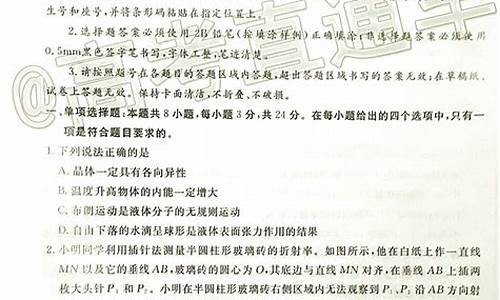 生号和座号,并将条形码粘贴在指定位置上。
2.选择题答案必须使用2B铅笔(按填涂样例)正确填涂;非选择题答案必须使用
0.5mm黑色签字笔书写,字体工整,笔迹清楚。
3.请按照题号在各题目的答题区域内答题,超出答题区域书写的答案无效;在草稿纸、
试卷上答题无效。保持卡面清洁,不折叠、不破损。
一、单项选择题:本题共8小题,每小题3分,共24分。在每小题给出的四个选项中,只有一
项是符合题目要求的。
1.下列说法正确的是
A.晶体一定具有各向异性
B.温度升高物体的内能一定增大
C.布朗运动是液体分子的无规则运动
D.自由下落的水滴呈球形是液体表面张力作用的结果
2.小明同学利用插针法测量半圆柱形玻璃砖的折射率。如图所示,他在白纸上作一直线
MN以及它的垂线AB,玻璃砖的圆心为O,其底边与直线MN对齐,在垂线AB上插两
枚大头针P₁和P₂。小明在半圆柱形玻璃砖右侧区域内无法观察到P₁、P₂沿AB方向射
@高考直通车